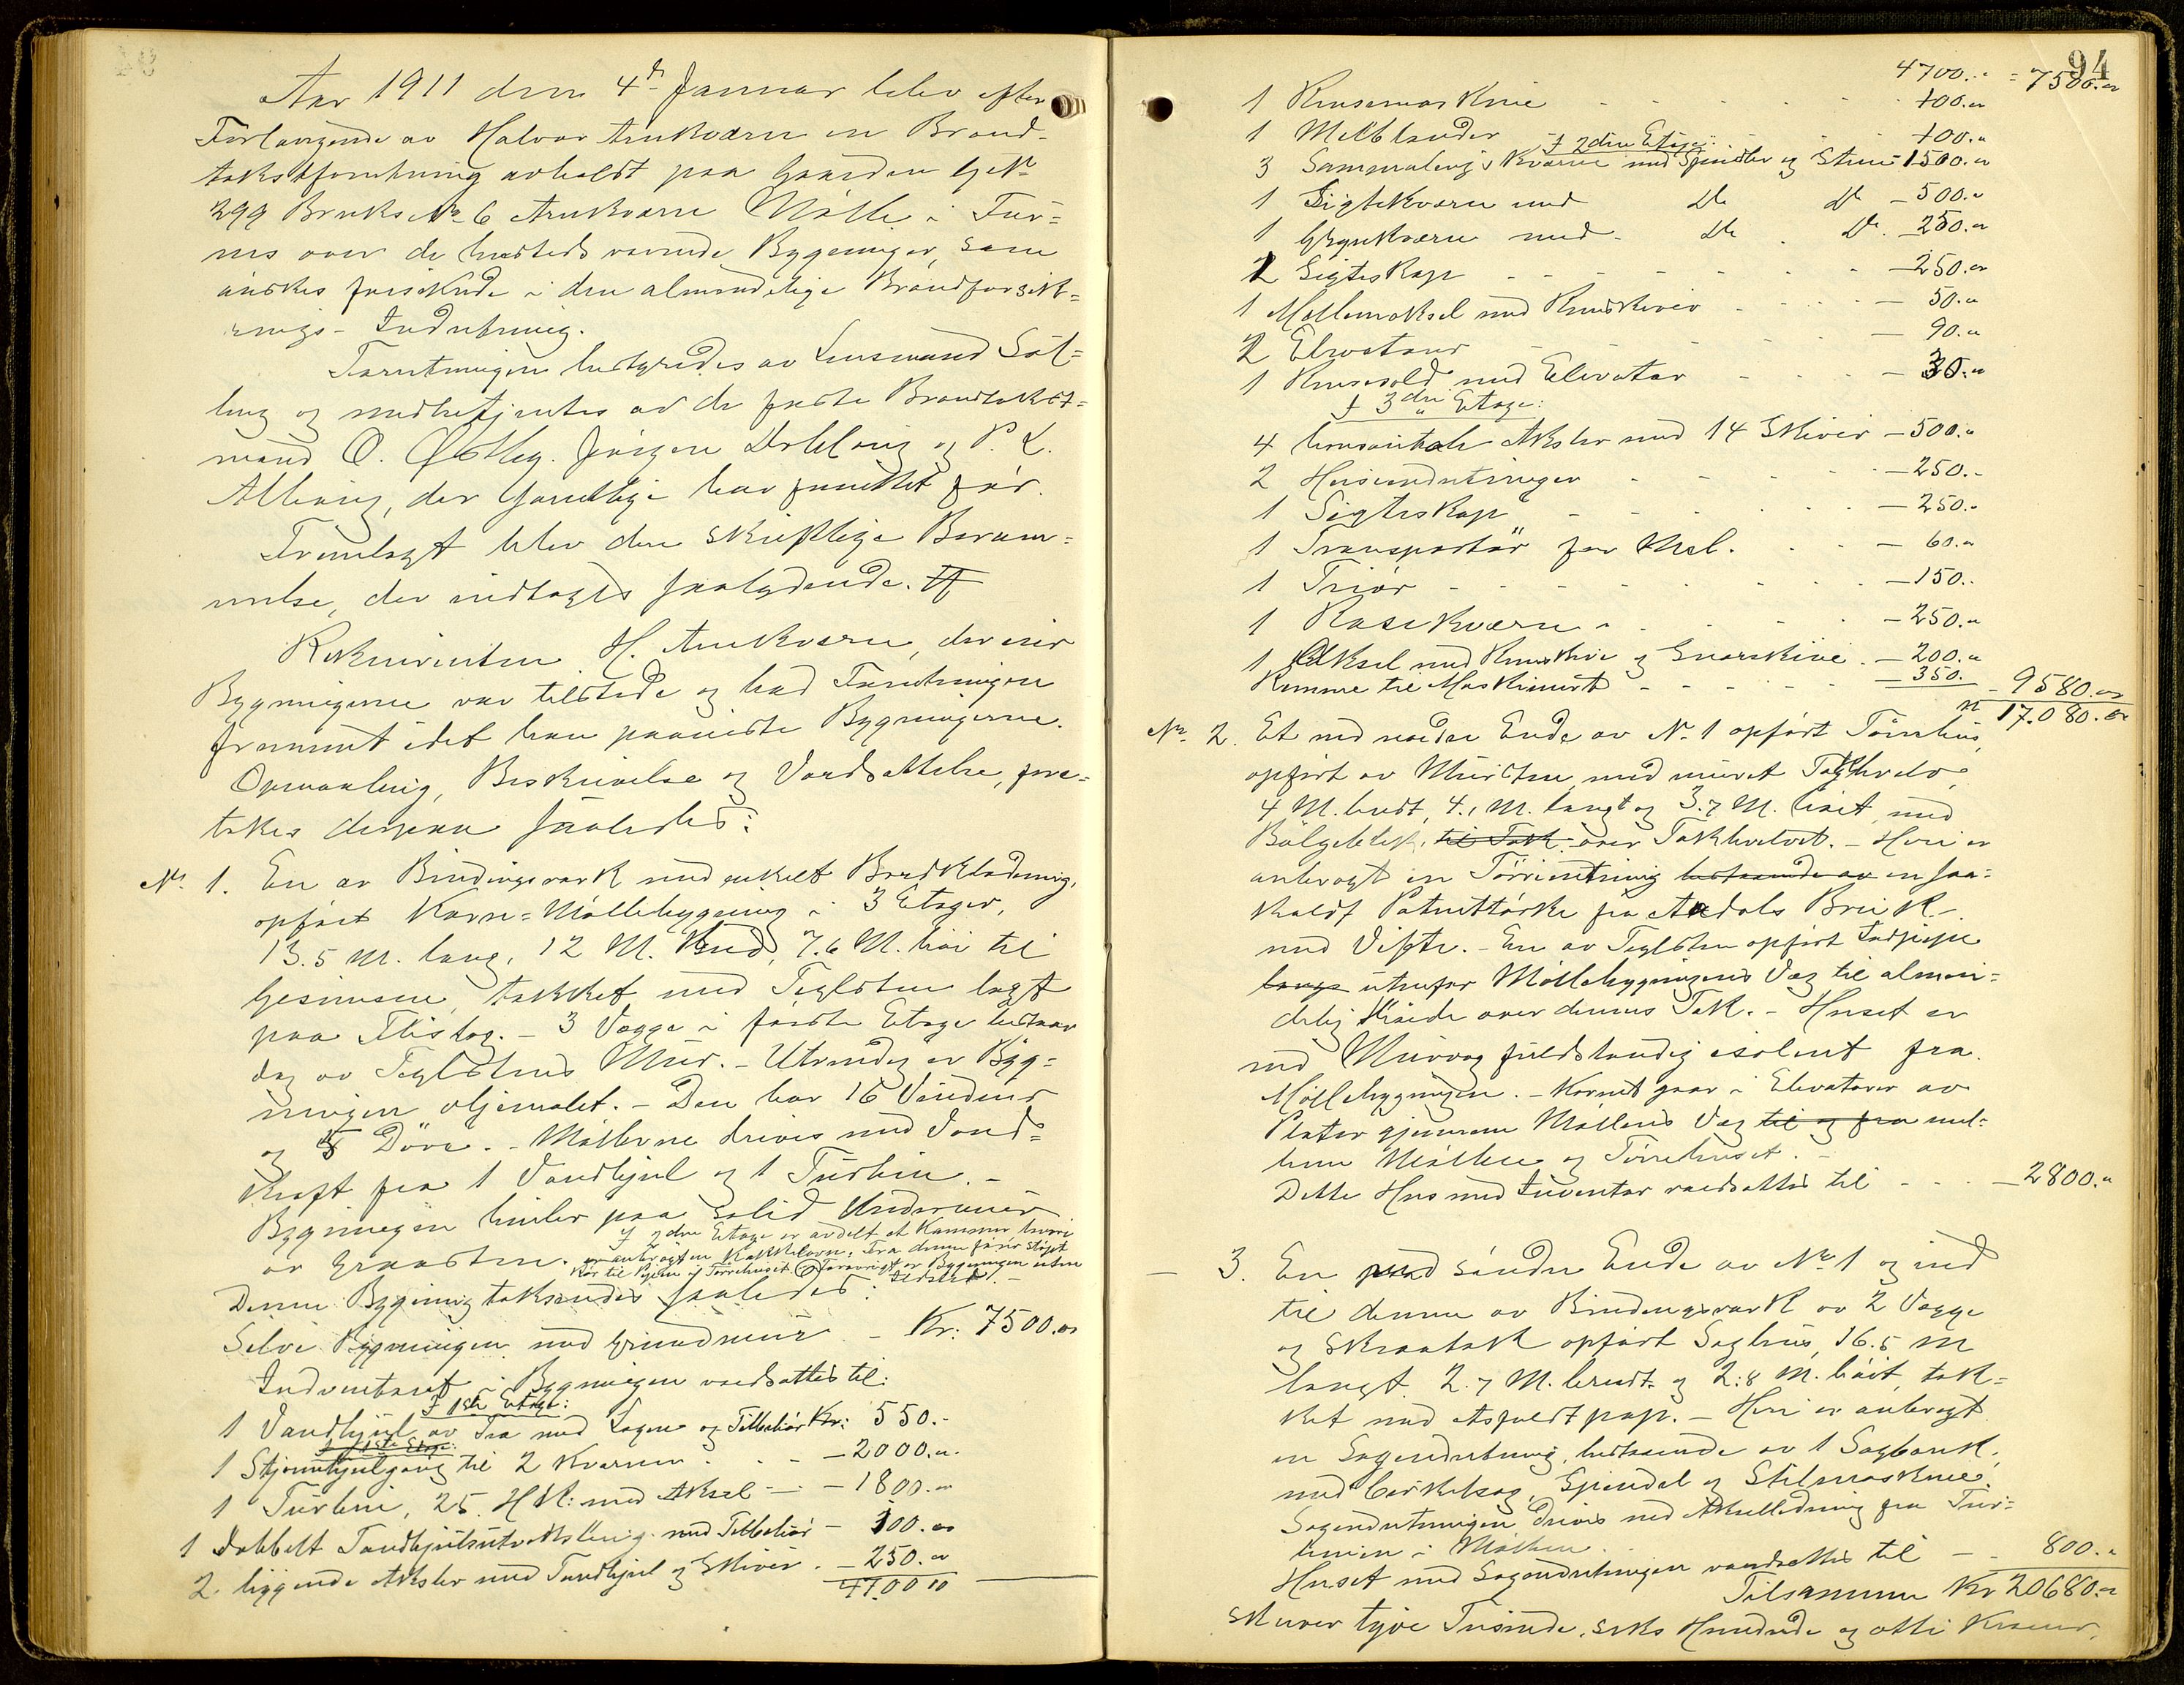 Aar 1911 den 4de Januar blev efter
Forlangende av Halvor Aukværn en Brand-
takstforretning avholdt paa Gaarden G. No
299 Bruks No 6 Aukværn Mølle i Fur-
nes over de herstedsværende Bygninger, som
ønskes forsikrede i den almindelige Brandforsikr-
ings-Indretning.
Forretningen bestyredes av Lensmand Søl-
berg og medbetjentes av de faste Brandtakst-
mænd O. Østby, Jørgen Dobloug og P. L.
Alhaug, der samtlige har funktet før.
Fremlagt blev den skriftlige Beram-
melse, der indtages saalydende. #
Rekvirenten H. Aukværn, der eier
Bygningerne var tilstede og bad Forretningen
fremmet idet han paaviste Bygningerne.
Opmaaling, Beskrivelse og Værdsættelse, fore-
tokes derpaa saaledes:
No. 1. En av Bindingsværk med enkelt Bordklædning,
opført Korn-Møllebygning i 3 Etager,
13.5 M. lang, 12 M. bred, 7.6 M. høi til
Gesimsen, tækket med Teglsten lagt
paa Flistag. - 3 Vægge i første Etage bestaar
dog av Teglstens Mur. - Utvendig er Byg-
ningen oljemalet. - Den har 16 Vinduer
og 5 Døre. - Møllerne drives med Vand-
kraft fra 1 Vandhjul og 1 Turbin. -
Bygningen hviler paa solid Undermur
av Graasten. I 2den Etage er avdelt et Kammer hvori
er anbragt en Kakkelovn. Fra denne fører støpt
Rør til Pipen i Tørrehuset. Forøvrigt er Bygningen uten
Ildsted. -
Denne Bygning takseredes saaledes:
Selve Bygningen med Grundmur - Kr: 7500.00
Indventaret i Bygningen værdsættes til:
I 1ste Etage:
1 Vandhjul av Træ med Lagere og Tilbehør Kr: 550.-
I 1ste Etage:
1 Stjernehjulgang til 2 Kværner - - 2000.00
1 Turbin, 25 HK: med Aksel - - 1800.00
1 dobbelt Tandhjulsutveksling med Tilbehør - 100.00
2 liggende Aksler med Tandhjul og Skiver - 250.00
4700 00
94
4700.- = 7500.00
1 Rensemaskine - - - 100.00
1 Melblander - - - 100.00
I 2den Etage:
3 Sammalings Kværne med Spindler og Stene - 1500.00
1 Sigtekværn med Do Do - 500.00
1 Grynkværn med Do Do - 250.00
2 Sigteskap - - - 250.00
1 Mellemaksel med Remskiver - - 50.00
2 Elevatorer - - - 90.00
1 Rensesold med Elevator - - 30.00
I 3die Etage:
4 horisontale Aksler med 14 Skiver - 500.00
2 Heiseindretninger - - - 250.-
1 Sigteskap - - - 250.-
1 Transportør for Mel. - - 60.00
1 Triør - - - 150.-
1 Rasekværn - - - 250.00
1 Aksel med Remskive og Snorskive - 200.00
Remme til Maskineriet - - - 350. - 9580.00
Kr 17.080.00
No. 2. Et ved nordre Ende av No 1 opført Tørrehus,
opført av Mursten, med muret Takhvelv,
4 M. bredt, 4.1 M. langt og 3.7 M. høit, med
Bølgeblik til Tak over Takhvelvet. - Heri er
anbragt en Tørreindretning bestaaende av en saa-
kaldt Patenttørke fra Aadals Bruk
med Vifte. - En av Teglsten opført Ildpipe
langs utenfor Møllebygningens Væg til almin-
delig Høide over dennes Tak. - Huset er
ved Murvæg fuldstændig isolert fra
Møllebygningen. - Kornet gaar i Elevatorer av
Plater gjennem Møllens Væg til og fra mel-
lem Møllen og Tørrehuset. -
Dette Hus med Inventar værdsættes til - - - 2800.00
- 3. En ved søndre Ende av No 1 og ind
til denne av Bindingsværk av 2 Vægge
og Skraatak opført Saghus, 16.5 M
langt, 2.7 M. bredt og 2.8 M. høit, tæk-
ket med Asfaltpap. - Heri er anbragt
en Sagindretning, bestaaende av 1 Sagbænk,
med Cirkelsag, Spindel og Stilmaskine.
Sagindretningen drives med Akselledning fra Tur-
binen i Møllen.
Huset med Sagindretningen værdsættes til - - 800.-
Tilsammen Kr 20680.00
skriver tyve Tusinde, seks Hundrede og otti Kroner.